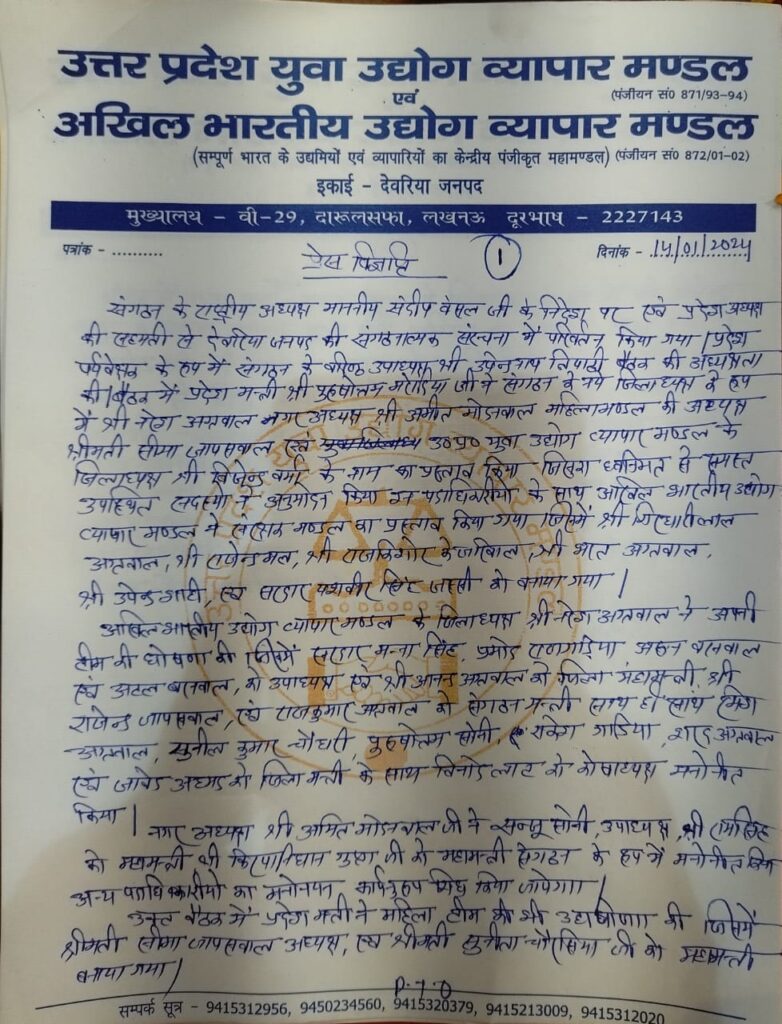 उत्तर प्रदेश युवा उद्योग व्यापार मण्डल
(पंजीयन सं0 871/93-94)
एवं
अखिल भारतीय उद्योग व्यापार मण्डल
(सम्पूर्ण भारत के उद्यमियों एवं व्यापारियों का केन्द्रीय पंजीकृत महामण्डल) (पंजीयन सं0 872/01-02)
इकाई - देवरिया जनपद
मुख्यालय - वी-29, दारूलसफा, लखनऊ दूरभाष - 2227143
पत्रांक - ..........
प्रेस विज्ञप्ति
1
दिनांक - 14/01/2024
संगठन के राष्ट्रीय अध्यक्ष माननीय संदीप बंसल जी के निर्देश पर एवं प्रदेश अध्यक्ष
की सहमती से देवरिया जनपद की संगठनात्मक संरचना में परिवर्तन किया गया | प्रदेश
पर्यवेक्षक के रूप में संगठन के वरिष्ठ उपाध्यक्ष श्री उपेन्द्रनाथ तिवारी बैठक की अध्यक्षता
की | बैठक में प्रदेश मन्त्री श्री पुरुषोत्तम जी ने संगठन के नये जिलाध्यक्ष के रूप
में श्री नरेश अग्रवाल नगर अध्यक्ष श्री अमीत मोदनवाल महिलामण्डल की अध्यक्ष
श्रीमती सीमा जायसवाल एवं उ0प्र0 युवा उद्योग व्यापार मण्डल के
जिलाध्यक्ष श्री वर्मा के नाम का प्रस्ताव किया जिसका ध्वनिमत से समस्त
उपस्थित सदस्यों ने अनुमोदन किया इन पदाधिकारीयों के साथ अखिल भारतीय उद्योग
व्यापार मण्डल के संरक्षक मण्डल का प्रस्ताव किया गया जिसमें श्री गिरधारीलाल
अग्रवाल, श्री राजेन्द्र, श्री राजकिशोर केजरीवाल, श्री भरत अग्रवाल,
श्री उपेन्द्र, एवं सरदार सिंह को बनाया गया |
अखिल भारतीय उद्योग व्यापार मण्डल के जिलाध्यक्ष श्री नरेश अग्रवाल ने अपनी
टीम की घोषणा की जिसमें सरदार मन्ना सिंह, प्रमोद अरुन बरनवाल
एवं अटल बरनवाल, को उपाध्यक्ष एवं श्री आनन्द अग्रवाल को जिला महामन्त्री, श्री
राजेन्द्र जायसवाल, एवं राजकुमार अग्रवाल को संगठन मन्त्री साथ ही साथ
अग्रवाल, सुनील कुमार चौधरी पुरुषोत्तम सोनी, राकेश, शरद अग्रवाल
एवं जावेद अहमद को जिला मन्त्री के साथ विनोद को कोषाध्यक्ष मनोनीत
किया |
नगर अध्यक्ष श्री अमित मोदनवाल जी ने सोनी, उपाध्यक्ष, श्री
को महामन्त्री श्री किरपानिधान गुप्ता जी को महामन्त्री संगठन के रूप में मनोनीत किया
अन्य पदाधिकारीयों का मनोनयन किया जायेगा |
उक्त बैठक में प्रदेश मन्त्री ने महिला टीम की भी की जिसमें
श्रीमती सीमा जायसवाल अध्यक्ष, एवं श्रीमती सुनीता चौरसिया जी को महामन्त्री
बनाया गया |
P.T.O
सम्पर्क सूत्र - 9415312956, 9450234560, 9415320379, 9415213009, 9415312020